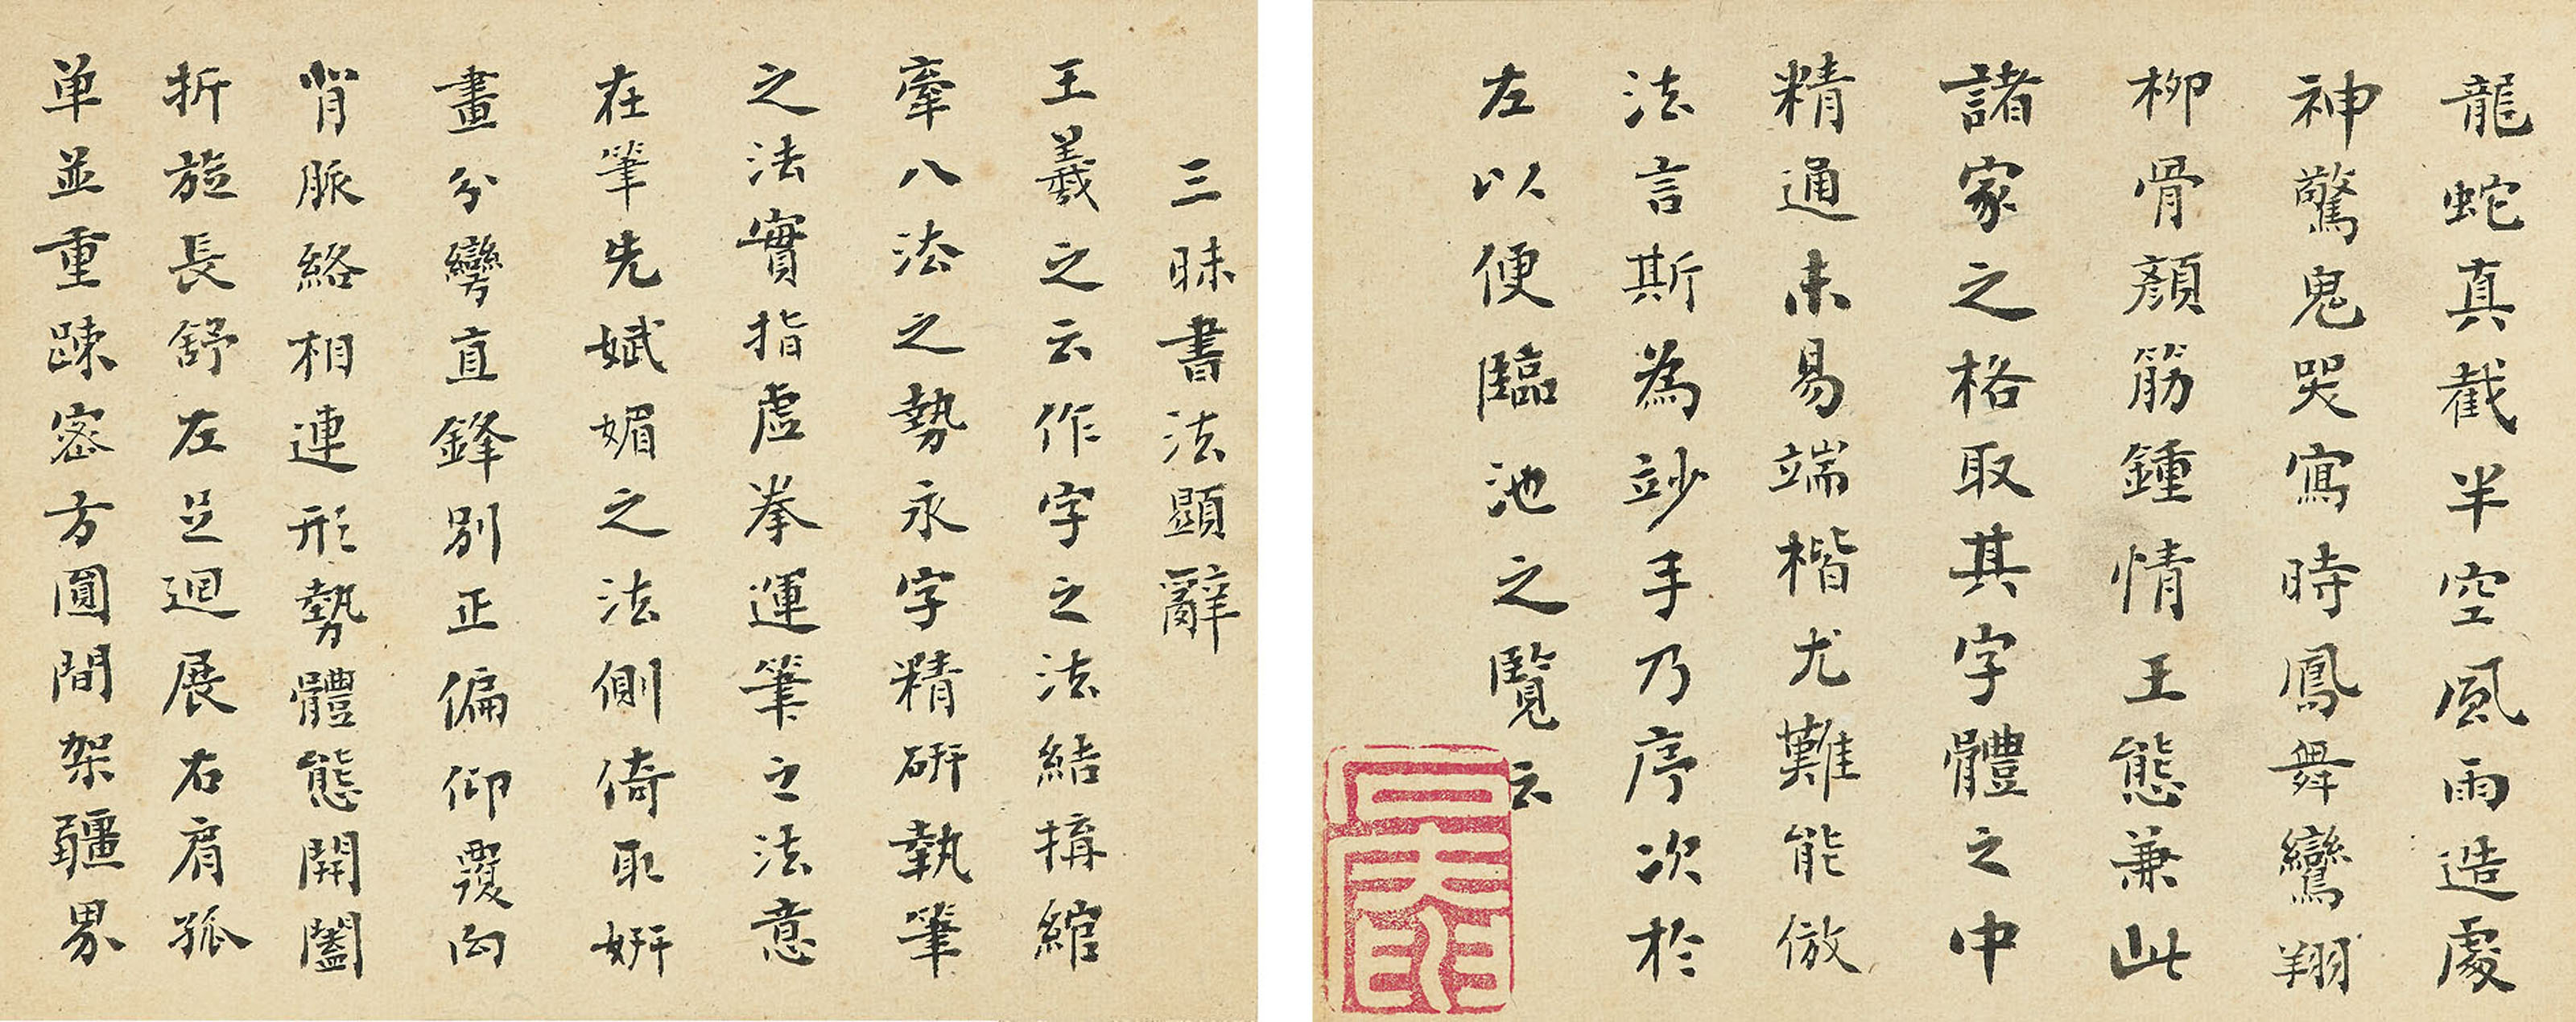 龍蛇真截半空風雨造處
神驚鬼哭寫時鳳舞鸞翔
柳骨顏筋鍾情王態兼此
諸家之格取其字體之中
精通未易端楷尤難能倣
法言斯為竗手乃序次於
左以便臨池之覽云
三昧書法顯辭
王羲之云作字之法結搆綰
牽八法之勢永字精研執筆
之法實指虛拳運筆之法意
在筆先斌媚之法側倚取妍
畫分彎直鋒別正偏仰覆向
背脈絡相連形勢體態開闔
折旋長舒左足迴展右肩孤
单並重踈密方圓間架疆界